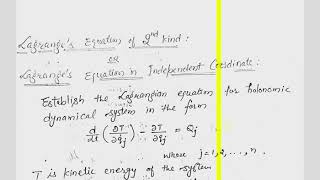 Lagrange's Equation of 2nd kind:
OR
Lagrange's Equation in Independent Coordinate:
Establish the Lagrangian equation for holonomic
dynamical system in the form
d/dt (∂T/∂q̇j) - ∂T/∂qj = Qj
where j=1,2,...,n.
T is kinetic energy of the system